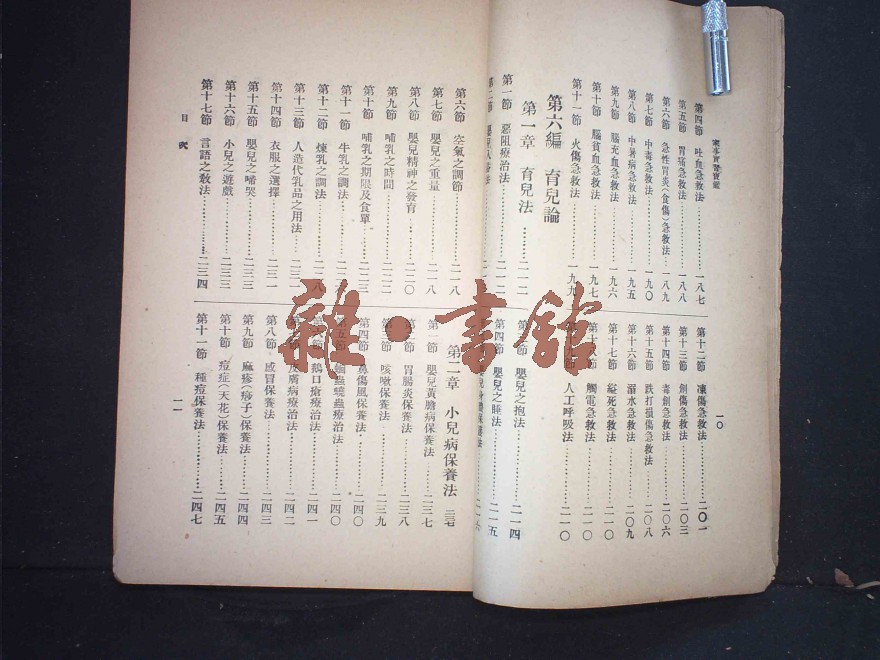 家事實習寶鑑
一〇
第四節 吐血急救法………一八七
第五節 胃痛急救法………一八八
第六節 急性胃炎(食傷)急救法…一八九
第七節 中毒急救法………一九〇
第八節 中暑病急救法………一九五
第九節 腦充血急救法………一九六
第十節 腦貧血急救法………一九七
第十一節 火傷急救法………一九九
第十二節 凍傷急救法………二〇一
第十三節 創傷急救法………二〇三
第十四節 毒創急救法………二〇六
第十五節 跌打損傷急救法………二〇八
第十六節 溺水急救法………二〇九
第十七節 縊死急救法………二一〇
第十八節 觸電急救法………二一〇
人工呼吸法………二一〇
第六編 育兒論
第一章 育兒法………二一二
第一節 惡阻療治法………二一二
第二節 嬰兒
第三節 嬰兒之抱法………二一四
第四節 嬰兒之睡法………二一五
二一六
第六節 空氣之調節………二一八
第七節 嬰兒之重量………二一八
第八節 嬰兒精神之發育………二二〇
第九節 哺乳之時間………二二二
第十節 哺乳之期限及食單………二二三
第十一節 牛乳之調法
第十二節 煉乳之調法………二二八
第十三節 人造代乳品之用法………二三
第十四節 衣服之選擇………二三一
第十五節 嬰兒之啼哭………二三三
第十六節 小兒之遊戲………二三三
第十七節 言語之敎法………二三四
第二章 小兒病保養法 二三七
第一節 嬰兒黃膽病保養法………二三七
第二節 胃腸炎保養法………二三八
第三節 咳嗽保養法………二三九
第四節 鼻傷風保養法………二四〇
第五節 蛔蟲蟯蟲療治法………二四〇
第六節 鵝口瘡療治法………二四一
第七節 皮膚病療治法………二四二
第八節 感冒保養法………二四三
第九節 麻疹(痧子)保養法………二四四
第十節 痘症(天花)保養法………二四五
第十一節 種痘保養法………二四七
目次
一一
雜·書舘